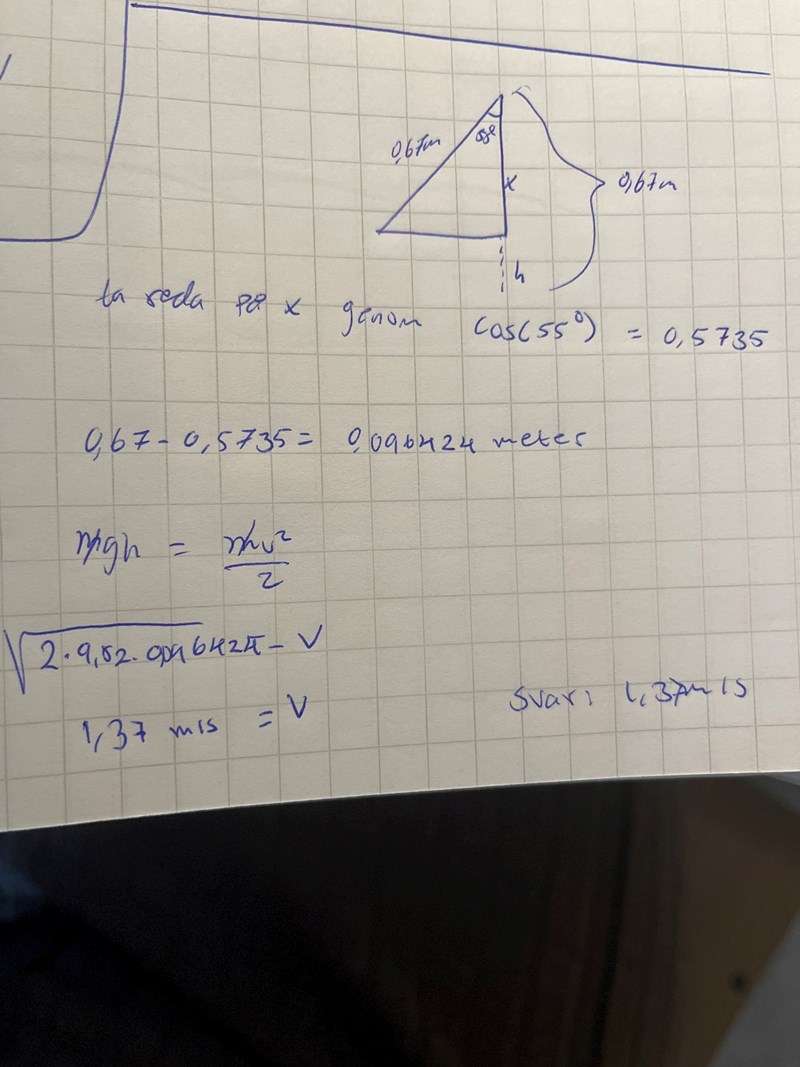 0,67m
55°
x
0,67m
h
ta reda på x genom cos(55°) = 0,5735
0,67 - 0,5735 = 0,096424 meter
mgh = mv²/2
√2·9,82·0,096424 = V
1,37 m/s = V
Svar: 1,37m/s